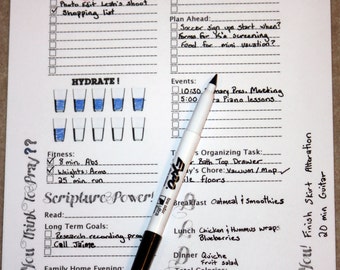 Photo Edit Leah's shoot
Shopping list
HYDRATE!
Fitness:
8 min Abs
Weights: Arms
25 min run
Scripture Power!
Read:
Long Term Goals:
Research recording
Call Jaime
Family Home Evening:
Did You Think To Pray??
Plan Ahead:
Soccer sign ups start when?
Forms for K's screening
Food for mini vacation?
Events:
10:30 Primary Pres. Meeting
5:00 Piano lessons
Today's Organizing Task:
Bath Top Drawer
Today's Chore: Vacuum/Mop
Floors
Breakfast Oatmeal & Smoothies
Lunch Chicken & Hummus wraps
Blueberries
Dinner Quiche
Fruit salad
Total Calories
EXPO
You!
Finish Shirt Alteration
20 min Guitar